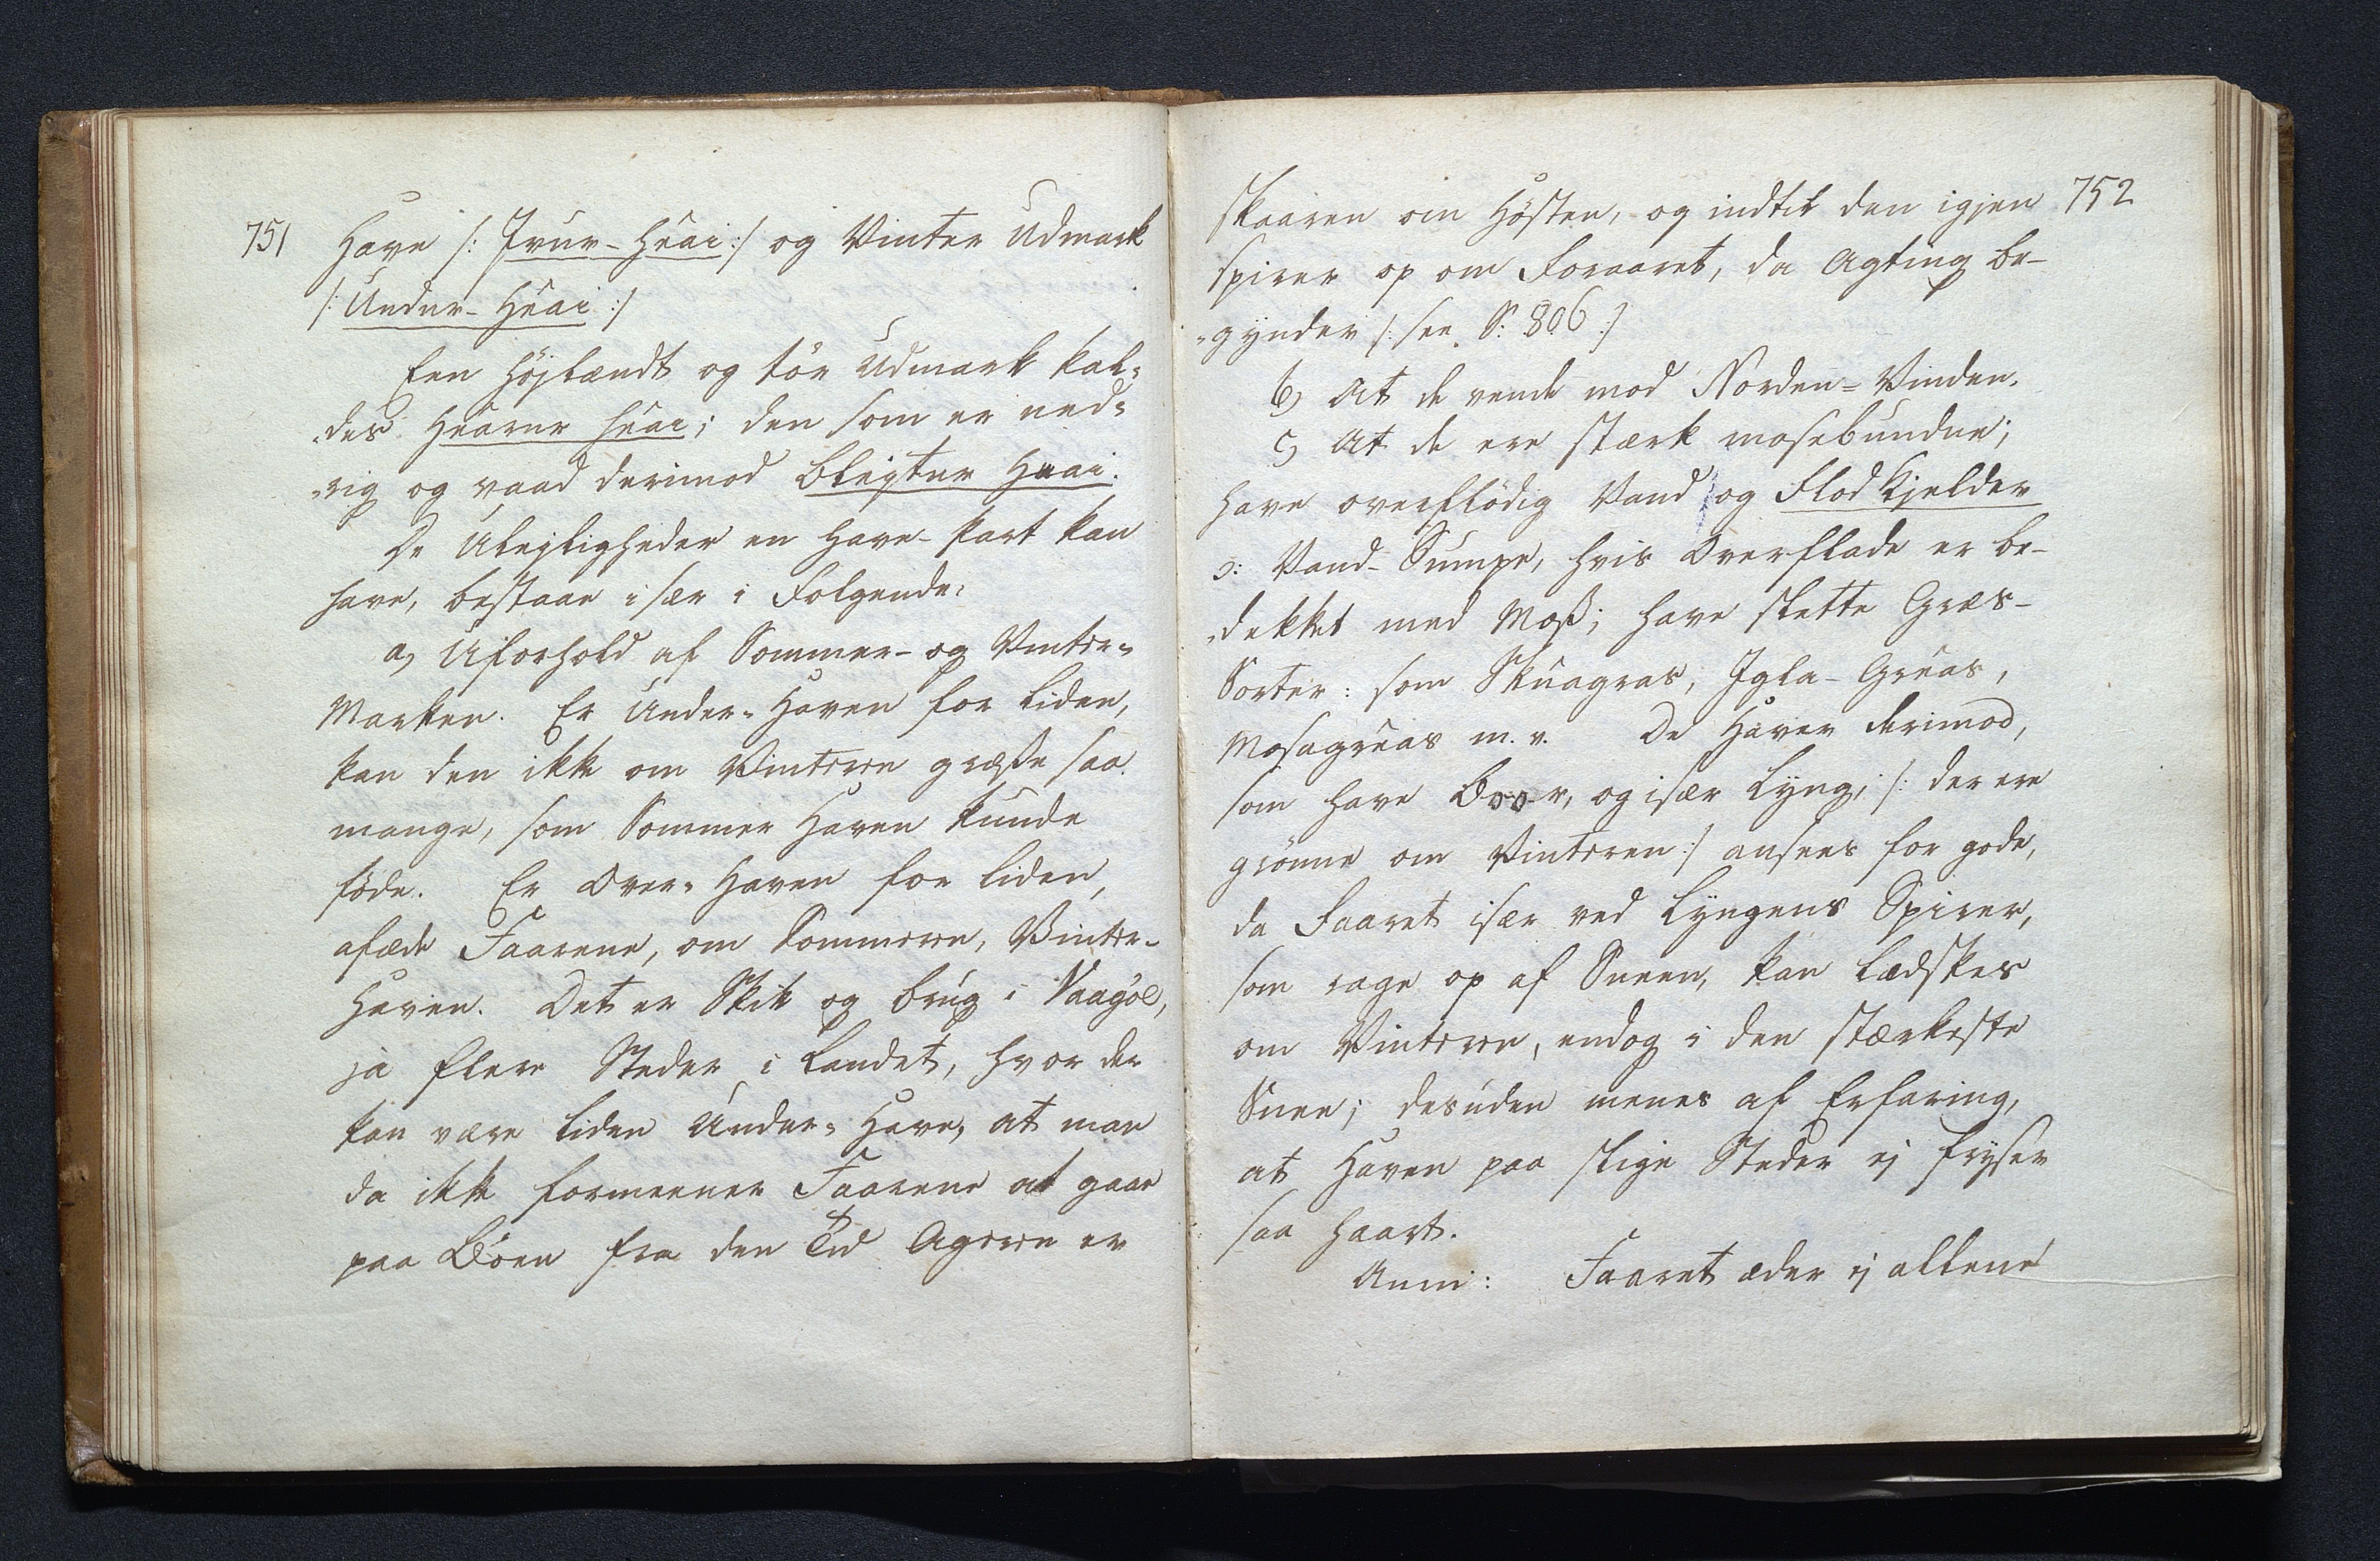 751
Have /: Ivur-Heai :/ og Vinter Udmark
/: Undur-Heai :/
Een höjlændt og tör Udmark kal-
des Hearur heai; den som er ned-
rig og vaad derimod Bleytur Heai.
De Ulejligheder en Have-Part kan
have, bestaae i sær i Følgende:
a, Uforhold af Sommer- og Vinter-
Marken. Er Under-Haven for liden,
kan den ikke om Vinteren græsse saa
mange, som Sommer Haven kunde
föde. Er Over-Haven for liden,
afæde Faarene, om Sommeren, Vinter-
Haven. Det er Skik og Brug i Vaagöe,
ja flere Steder i Landet, hvor der
kan være liden Under-Have, at man
da ikke formeener Faarene at gaae
paa Böen fra den Tid Ageren er
752
skaaren om Hösten, og indtil den igjen
spirer op om Foraaret, da Agting be-
gynder /: see S: 806 :/
b, At de vende mod Norden-Vinden.
c, At de ere stærk mosebundne;
have overflödig Vand og Flod Kjelder
ɔ: Vand-Sumpe, hvis Overflade er be-
dekket med Moß; have slette Græs-
Sorter: som Skuagras, Igla-Greas,
Mosagreas m. v. De Haver derimod,
som have Boor, og især Lyng; /: der ere
grönne om Vinteren :/ ansees for gode,
da Faaret især ved Lyngens Spirer,
som rage op af Sneen, kan lædskes
om Vinteren, endog i den stærkeste
Snee; desuden menes af Erfaring,
at Haven paa slige Steder ej fryser
saa haart.
Anm: Faaret æder ej allene